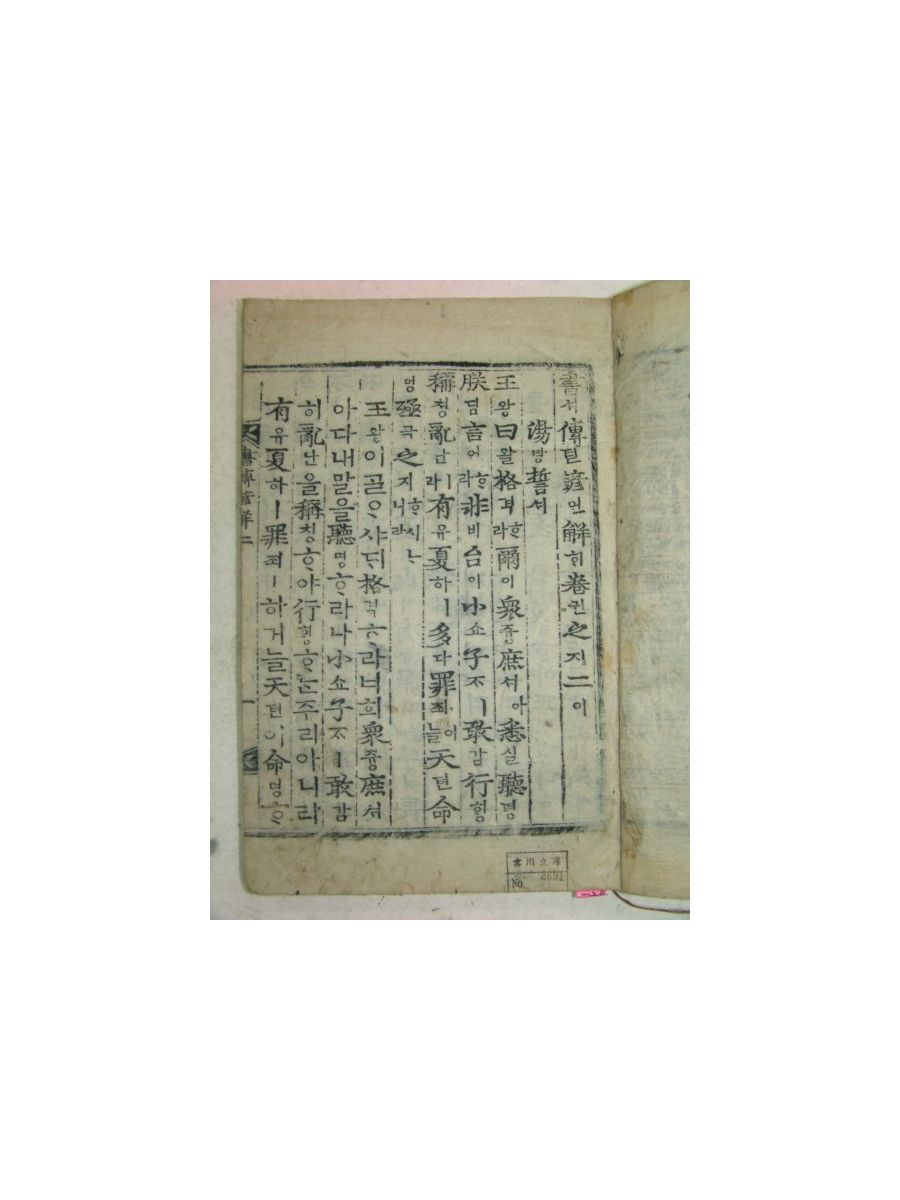 書셔傳뎐諺언解ᄒᆡ卷권之지二이
湯탕誓셔
王왕曰왈格격ᄒᆞ라爾이衆즁庶셔아悉실聽텽
朕딤言언ᄒᆞ라非비台이小쇼子ᄌᆞㅣ敢감行ᄒᆡᆼ
稱칭亂란이라有유夏하ㅣ多다罪죄ㅣ어늘天텬命
명殛극之지ᄒᆞ시ᄂᆞ니라
王왕이ᄀᆞᆯᄋᆞ샤ᄃᆡ格격ᄒᆞ라너희衆즁庶셔
아다내말을聽텽ᄒᆞ라나小쇼子ᄌᆞㅣ敢감
히亂난을稱칭ᄒᆞ야行ᄒᆡᆼᄒᆞᄂᆞᆫ주리아니라
有유夏하ㅣ罪죄ㅣ하거늘天텬이命명ᄒᆞ
書傳諺解 二
一
No. 2891